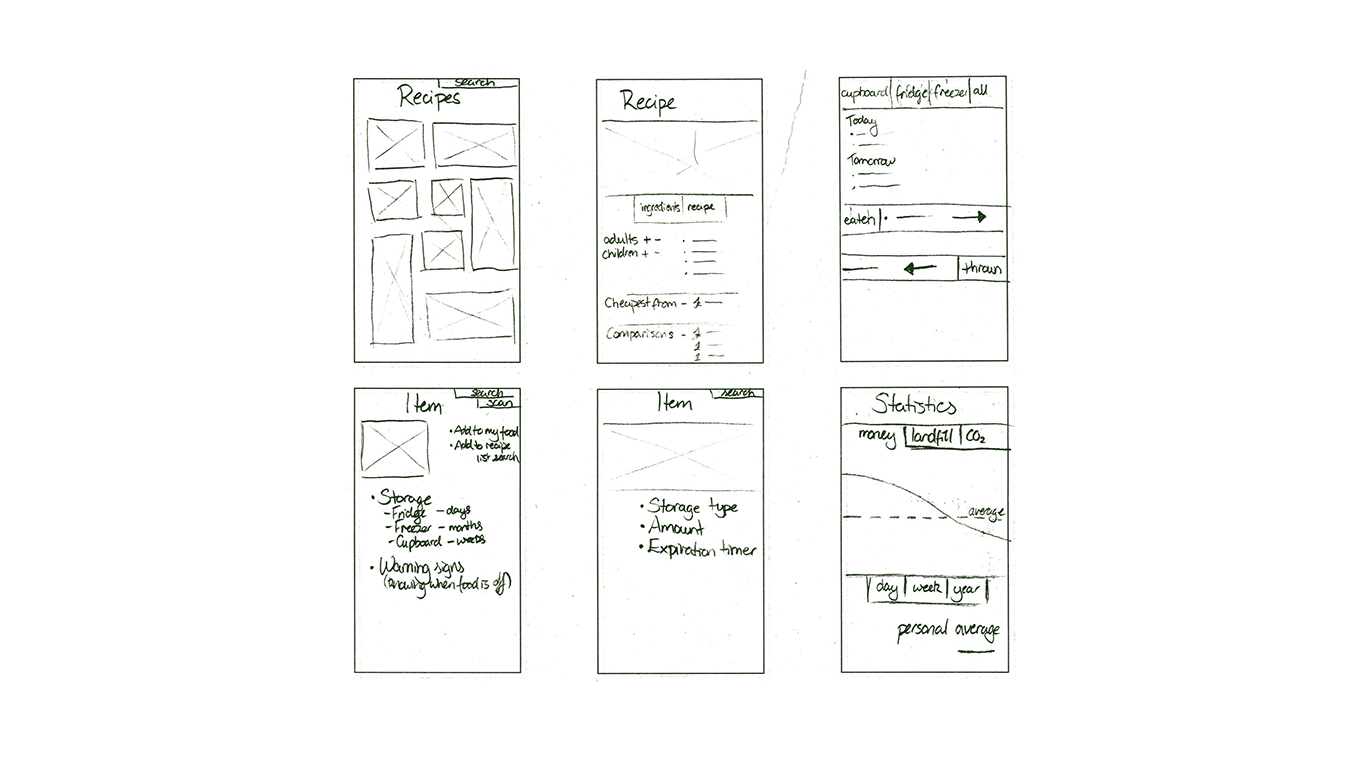 search
Recipes
Recipe
ingredients recipe
adults + -
children + -
Cheapest from - 1
Comparisons - 1
1
1
cupboard fridge freezer all
Today
Tomorrow
eaten
thrown
search
scan
Item
• Add to my food
• Add to recipe
list search
• Storage
- Fridge - days
- Freezer - months
- Cupboard - weeks
• Warning signs
(knowing when food is off)
search
Item
• Storage type
• Amount
• Expiration timer
Statistics
money landfill CO₂
average
day week year
personal average